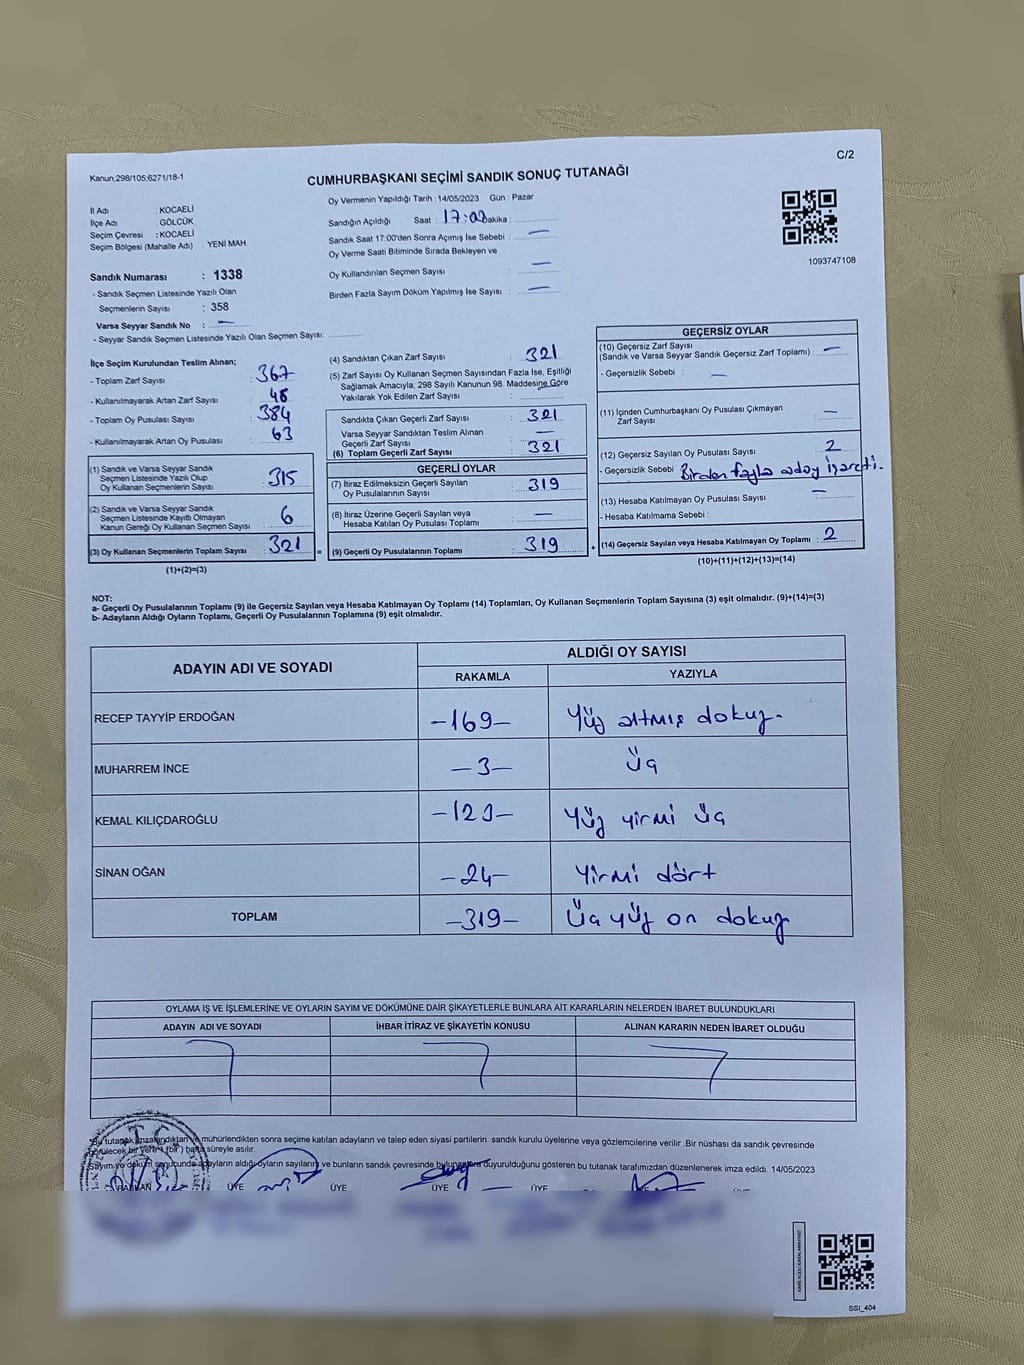 C/2
Kanun:298/105,6271/18-1
CUMHURBAŞKANI SEÇİMİ SANDIK SONUÇ TUTANAĞI
İl Adı : KOCAELİ
İlçe Adı : GÖLCÜK
Seçim Çevresi : KOCAELİ
Seçim Bölgesi (Mahalle Adı) : YENİ MAH.
Sandık Numarası : 1338
- Sandık Seçmen Listesinde Yazılı Olan
Seçmenlerin Sayısı : 358
Varsa Seyyar Sandık No : —
- Seyyar Sandık Seçmen Listesinde Yazılı Olan Seçmen Sayısı:
Oy Vermenin Yapıldığı Tarih : 14/05/2023 Gün : Pazar
Sandığın Açıldığı Saat : 17:00 Dakika :
Sandık Saat 17:00'den Sonra Açımış İse Sebebi : —
Oy Verme Saati Bitiminde Sırada Bekleyen ve
Oy Kullandırılan Seçmen Sayısı : —
Birden Fazla Sayım Döküm Yapılmış İse Sayısı : —
1093747108
İlçe Seçim Kurulundan Teslim Alınan;
- Toplam Zarf Sayısı : 367
- Kullanılmayarak Artan Zarf Sayısı : 46
- Toplam Oy Pusulası Sayısı : 384
- Kullanılmayarak Artan Oy Pusulası : 63
(1) Sandık ve Varsa Seyyar Sandık
Seçmen Listesinde Yazılı Olup
Oy Kullanan Seçmenlerin Sayısı : 315
(2) Sandık ve Varsa Seyyar Sandık
Seçmen Listesinde Kayıtlı Olmayan
Kanun Gereği Oy Kullanan Seçmen Sayısı : 6
(3) Oy Kullanan Seçmenlerin Toplam Sayısı : 321 =
(1)+(2)=(3)
(4) Sandıktan Çıkan Zarf Sayısı : 321
(5) Zarf Sayısı Oy Kullanan Seçmen Sayısından Fazla İse, Eşitliği
Sağlamak Amacıyla, 298 Sayılı Kanunun 98. Maddesine Göre
Yakılarak Yok Edilen Zarf Sayısı : —
Sandıkta Çıkan Geçerli Zarf Sayısı : 321
Varsa Seyyar Sandıktan Teslim Alınan
Geçerli Zarf Sayısı : —
(6) Toplam Geçerli Zarf Sayısı : 321
GEÇERLİ OYLAR
(7) İtiraz Edilmeksizin Geçerli Sayılan
Oy Pusulalarının Sayısı : 319
(8) İtiraz Üzerine Geçerli Sayılan veya
Hesaba Katılan Oy Pusulası Toplamı : —
(9) Geçerli Oy Pusulalarının Toplamı : 319 +
GEÇERSİZ OYLAR
(10) Geçersiz Zarf Sayısı
(Sandık ve Varsa Seyyar Sandık Geçersiz Zarf Toplamı) : —
- Geçersizlik Sebebi : —
(11) İçinden Cumhurbaşkanı Oy Pusulası Çıkmayan
Zarf Sayısı : —
(12) Geçersiz Sayılan Oy Pusulası Sayısı : 2
- Geçersizlik Sebebi : Birden fazla aday işareti.
(13) Hesaba Katılmayan Oy Pusulası Sayısı : —
- Hesaba Katılmama Sebebi :
(14) Geçersiz Sayılan veya Hesaba Katılmayan Oy Toplamı : 2
(10)+(11)+(12)+(13)=(14)
NOT:
a- Geçerli Oy Pusulalarının Toplamı (9) ile Geçersiz Sayılan veya Hesaba Katılmayan Oy Toplamı (14) Toplamları, Oy Kullanan Seçmenlerin Toplam Sayısına (3) eşit olmalıdır. (9)+(14)=(3)
b- Adayların Aldığı Oyların Toplamı, Geçerli Oy Pusulalarının Toplamına (9) eşit olmalıdır.
ADAYIN ADI VE SOYADI
ALDIĞI OY SAYISI
RAKAMLA YAZIYLA
RECEP TAYYİP ERDOĞAN -169- Yüz altmış dokuz-
MUHARREM İNCE -3- Üç
KEMAL KILIÇDAROĞLU -123- Yüz yirmi üç
SİNAN OĞAN -24- Yirmi dört
TOPLAM -319- Üç yüz on dokuz
OYLAMA İŞ VE İŞLEMLERİNE VE OYLARIN SAYIM VE DÖKÜMÜNE DAİR ŞİKAYETLERLE BUNLARA AİT KARARLARIN NELERDEN İBARET BULUNDUKLARI
ADAYIN ADI VE SOYADI İHBAR İTİRAZ VE ŞİKAYETİN KONUSU ALINAN KARARIN NEDEN İBARET OLDUĞU
Bu tutanak imzalandıktan ve mühürlendikten sonra seçime katılan adayların ve talep eden siyasi partilerin sandık kurulu üyelerine veya gözlemcilerine verilir .Bir nüshası da sandık çevresinde
görülecek bir yere 1 (bir ) hafta süreyle asılır.
Sayım ve döküm sonucunda adayların aldığı oyların sayılarını ve bunların sandık çevresinde bulunanlara duyurulduğunu gösteren bu tutanak tarafımızdan düzenlenerek imza edildi. 14/05/2023
BAŞKAN ÜYE ÜYE ÜYE ÜYE ÜYE ÜYE
SSI_404